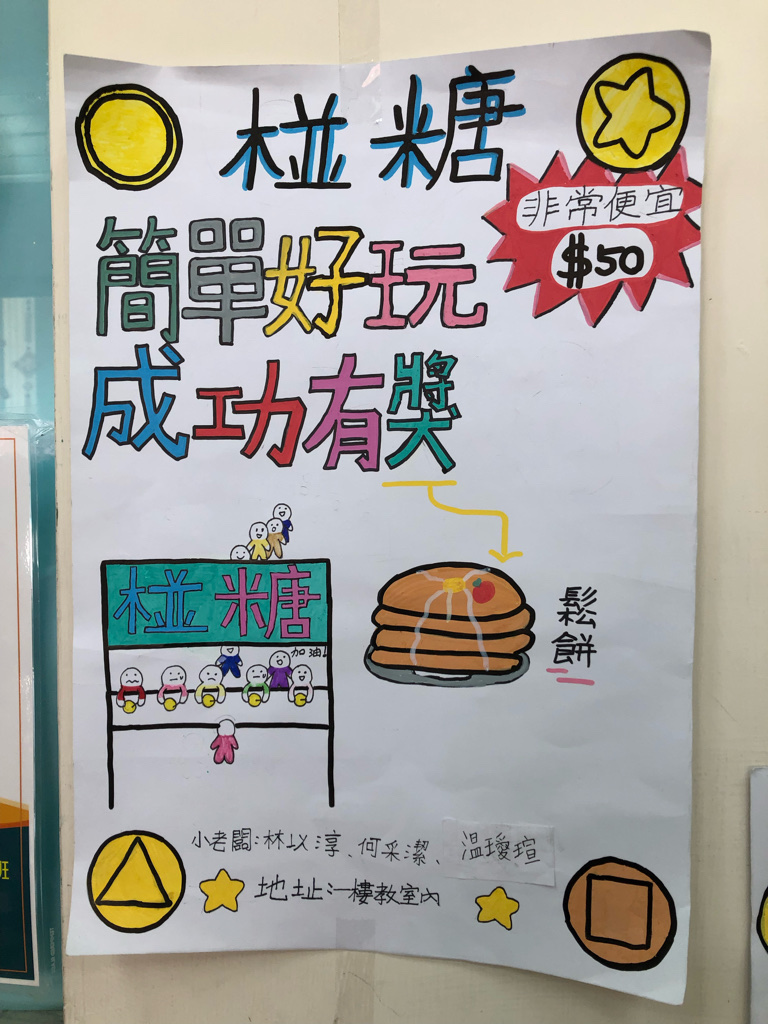 椪糖
非常便宜
$50
簡單好玩
成功有獎
椪糖
加油!
鬆餅
小老闆:林以淳、何采潔、温璦瑄
地址:一樓教室內
班